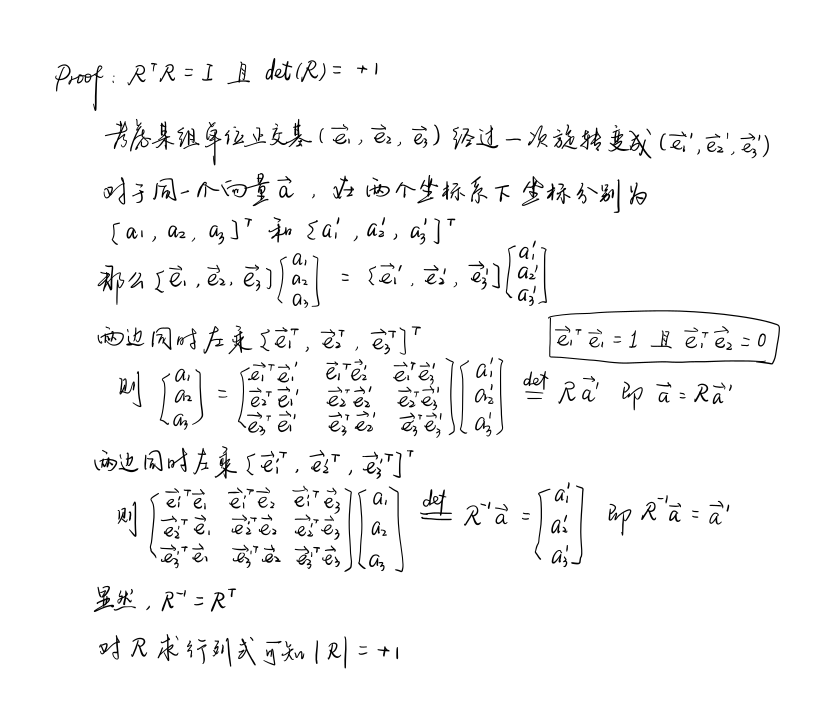 Proof: RᵀR = I 且 det(R) = +1
考虑某组单位正交基(e⃗₁, e⃗₂, e⃗₃)经过一次旋转变成(e⃗₁', e⃗₂', e⃗₃')
对于同一个向量a⃗，在两个坐标系下坐标分别为
[a₁, a₂, a₃]ᵀ 和 [a₁', a₂', a₃']ᵀ
那么[e⃗₁, e⃗₂, e⃗₃] [a₁ a₂ a₃] = [e⃗₁', e⃗₂', e⃗₃'] [a₁' a₂' a₃']
两边同时左乘[e⃗₁ᵀ, e⃗₂ᵀ, e⃗₃ᵀ]ᵀ
e⃗₁ᵀe⃗₁ = 1 且 e⃗₁ᵀe⃗₂ = 0
则 [a₁ a₂ a₃] = [e⃗₁ᵀe⃗₁' e⃗₁ᵀe⃗₂' e⃗₁ᵀe⃗₃' e⃗₂ᵀe⃗₁' e⃗₂ᵀe⃗₂' e⃗₂ᵀe⃗₃' e⃗₃ᵀe⃗₁' e⃗₃ᵀe⃗₂' e⃗₃ᵀe⃗₃'] [a₁' a₂' a₃'] def= Ra⃗' 即 a⃗ = Ra⃗'
两边同时左乘[e⃗₁'ᵀ, e⃗₂'ᵀ, e⃗₃'ᵀ]ᵀ
则 [e⃗₁'ᵀe⃗₁ e⃗₁'ᵀe⃗₂ e⃗₁'ᵀe⃗₃ e⃗₂'ᵀe⃗₁ e⃗₂'ᵀe⃗₂ e⃗₂'ᵀe⃗₃ e⃗₃'ᵀe⃗₁ e⃗₃'ᵀe⃗₂ e⃗₃'ᵀe⃗₃] [a₁ a₂ a₃] def= R⁻¹a⃗ = [a₁' a₂' a₃'] 即 R⁻¹a⃗ = a⃗'
显然，R⁻¹ = Rᵀ
对R求行列式可知|R| = +1